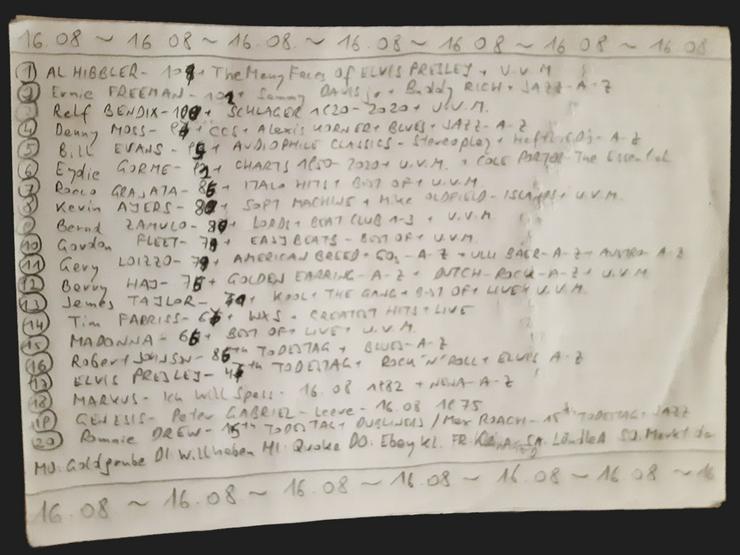 16.08 ~ 16 08 ~ 16.08. ~ 16.08 ~ 16 08 ~ 16 08 ~ 16 08
1 AL HIBBLER- + The Many Faces of ELVIS PRESLEY + U.V.M
2 Ernie FREEMAN- + Sammy DAVIS jr + Buddy RICH + JAZZ-A-Z
Ralf BENDIX- + SCHLAGER 1920-2020 + U.V.M.
4 Danny MOSS- + CCS + Alexis KORNER + BLUES + JAZZ- A-Z
5 Bill EVANS- + AUDIOPHILE CLASSICS- Stereoplay + A-Z
6 Eydie GORME- + CHARTS 1950-2020 + U.V.M. + COLE PORTER-The Essential
7 Rocco GRANATA- + ITALO HITS + BEST OF + U.V.M
8 Kevin AYERS- + SOFT MACHINE + Mike OLDFIELD- ISLANDS + U.V.M.
9 Bernd ZAMULO- + LORDS + BEAT CLUB 1-3 + U.V.M
10 Gordon FLEET- + EASYBEATS- BEST OF + U.V.M.
11 Gary LOIZZO- + AMERICAN BREED + 60s-A-Z + ULLI BAER-A-Z + AUSTRO- A-Z
12 Barry HAY- + GOLDEN EARRING- A-Z + DUTCH-ROCK-A-Z + U.V.M
13 James TAYLOR- + KOOL + THE GANG + BEST OF + LIVE + U.V.M.
14 Tim FARRISS- + INXS + GREATEST HITS + LIVE
15 MADONNA- + BEST OF + LIVE + U.V.M.
16 Robert JOHNSON- TODESTAG + BLUES-A-Z
17 ELVIS PRESLEY- TODESTAG + ROCK'N'ROLL + ELVIS A-Z
18 MARKUS- Ich Will Spass- 16.08 1982 + NENA-A-Z
19 GENESIS- Peter GABRIEL- Leave- 16.08 1975
20 Ronnie DREW- 15th TODESTAG + DUBLINERS / Max ROACH- TODESTAG + JAZZ
MO: Goldgrube DI: Willhaben MI: Quoka DO: Ebay Kl. FR: SA: LändleA SO: Markt.de
16.08 ~ 16.08 ~ 16.08 ~ 16.08 ~ 16.08 ~ 16.08 ~ 16